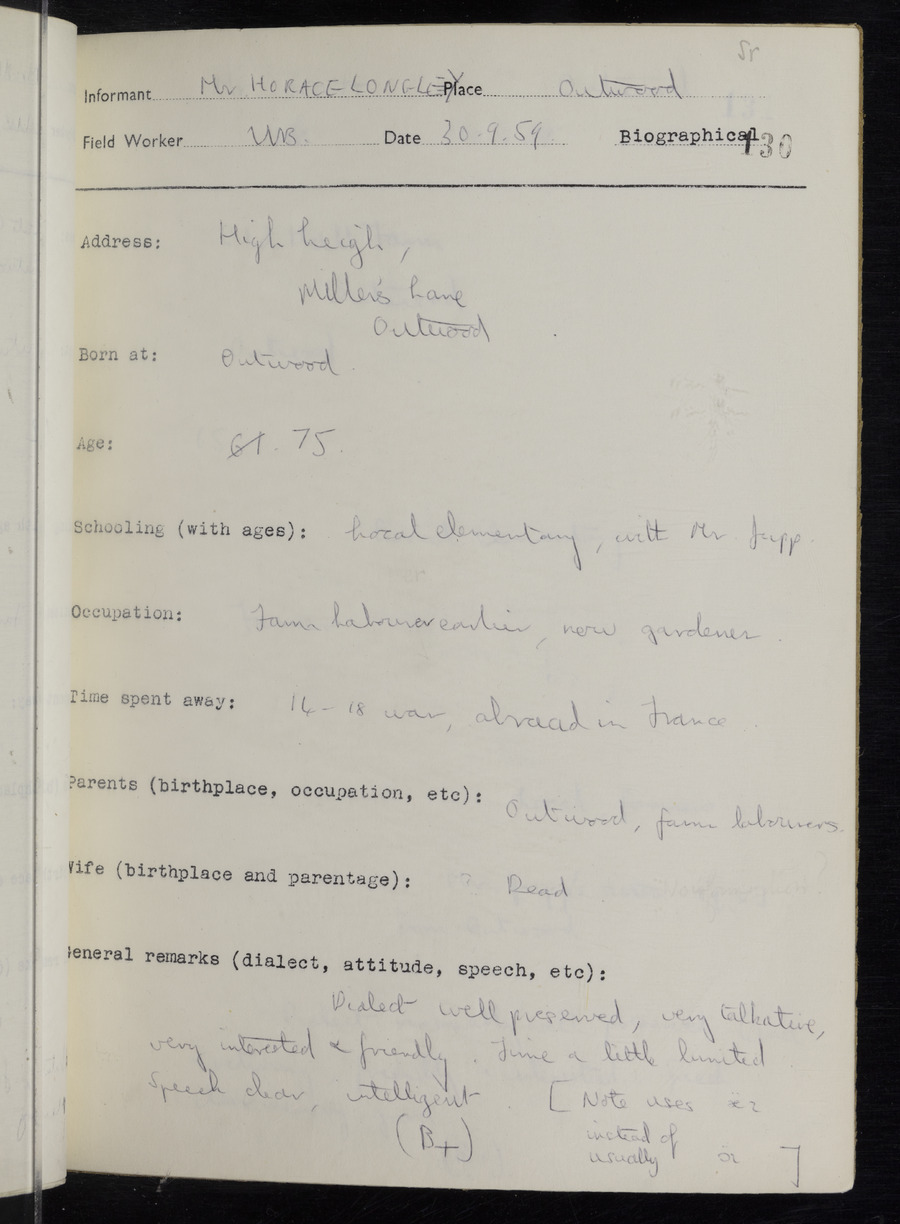 Sr
Informant Mr HORACE LONGLEY Place Outwood
Field Worker Date 30.9.59 Biographical 130
Address: High Leigh,
Miller's Lane
Outwood
Born at: Outwood.
Age: 61. 75.
Schooling (with ages): Local elementary, with Mr Jupp.
Occupation: Farm labourer earlier, now gardener.
Time spent away: 14-18 war, abroad in France.
Parents (birthplace, occupation, etc): Outwood, farm labourers.
Wife (birthplace and parentage): ? Dead
General remarks (dialect, attitude, speech, etc):
Dialect well preserved, very talkative,
very interested & friendly. Time a little limited
Speech clear, intelligent. [Note uses
(B+) instead of
usually ]